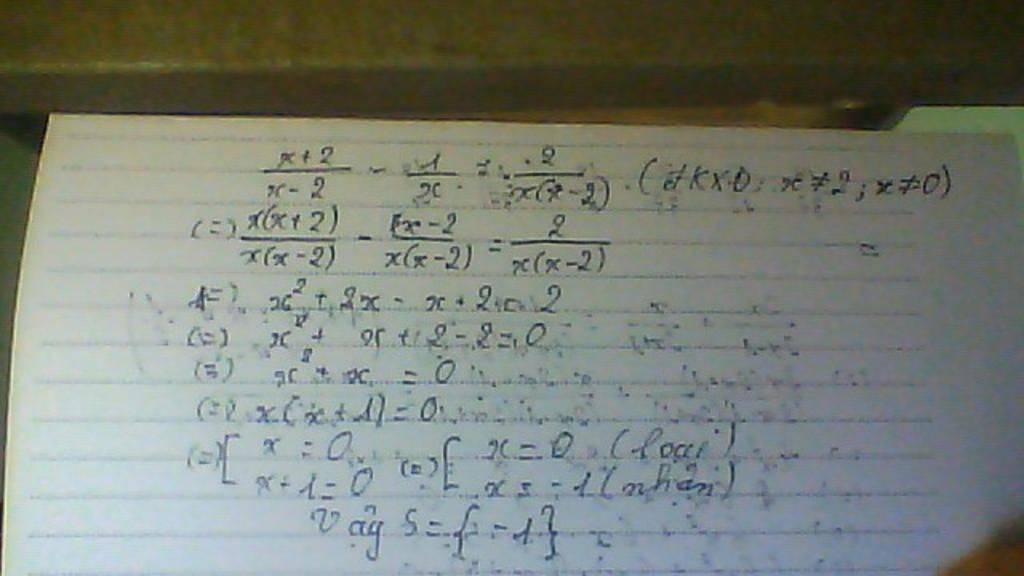 x+2/x-2 - 1/x = 2/x(x-2) (ĐKXĐ: x≠2; x≠0)
(=) x(x+2)/x(x-2) - x-2/x(x-2) = 2/x(x-2) =
(=) x² + 2x - x + 2 = 2
(=) x² + x + 2 - 2 = 0
(=) x² + x = 0
(=) x(x+1) = 0
(=) [ x = 0 (=) [ x = 0 (loại)
x+1=0 x = -1 (nhận)
Vậy S = { -1 }